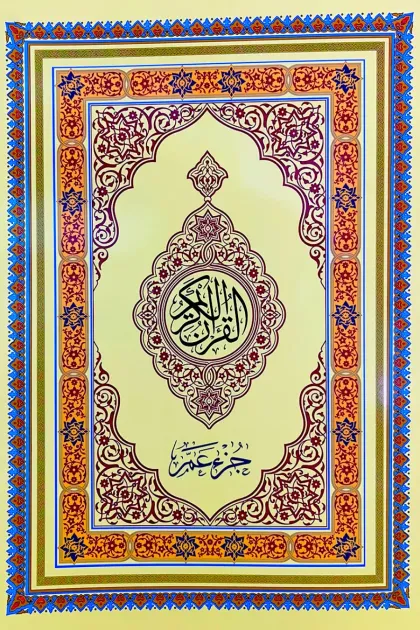 القرآن الكريم
جزء عم